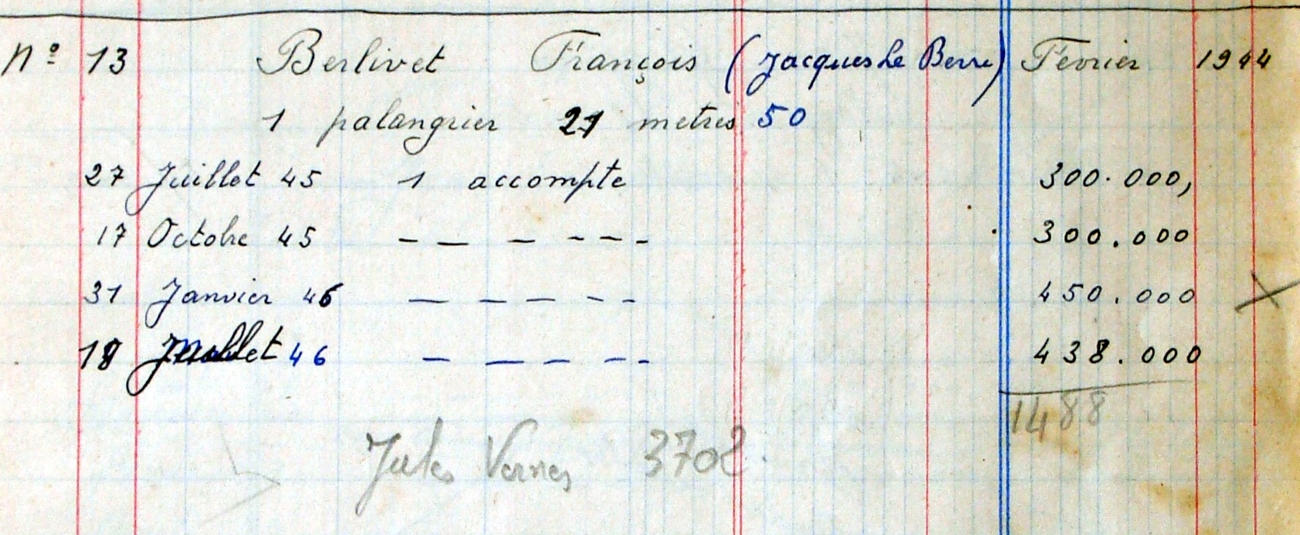 N° 13 Berlivet François (Jacques Le Berre) Février 1944
1 palangrier 21 metres 50
27 Juillet 45 1 accompte 300.000,
17 Octobre 45 — — — — — 300.000
31 Janvier 46 — — — — — 450.000 X
18 Juillet 46 — — — — — 438.000
1488
Jules Vernes 3702